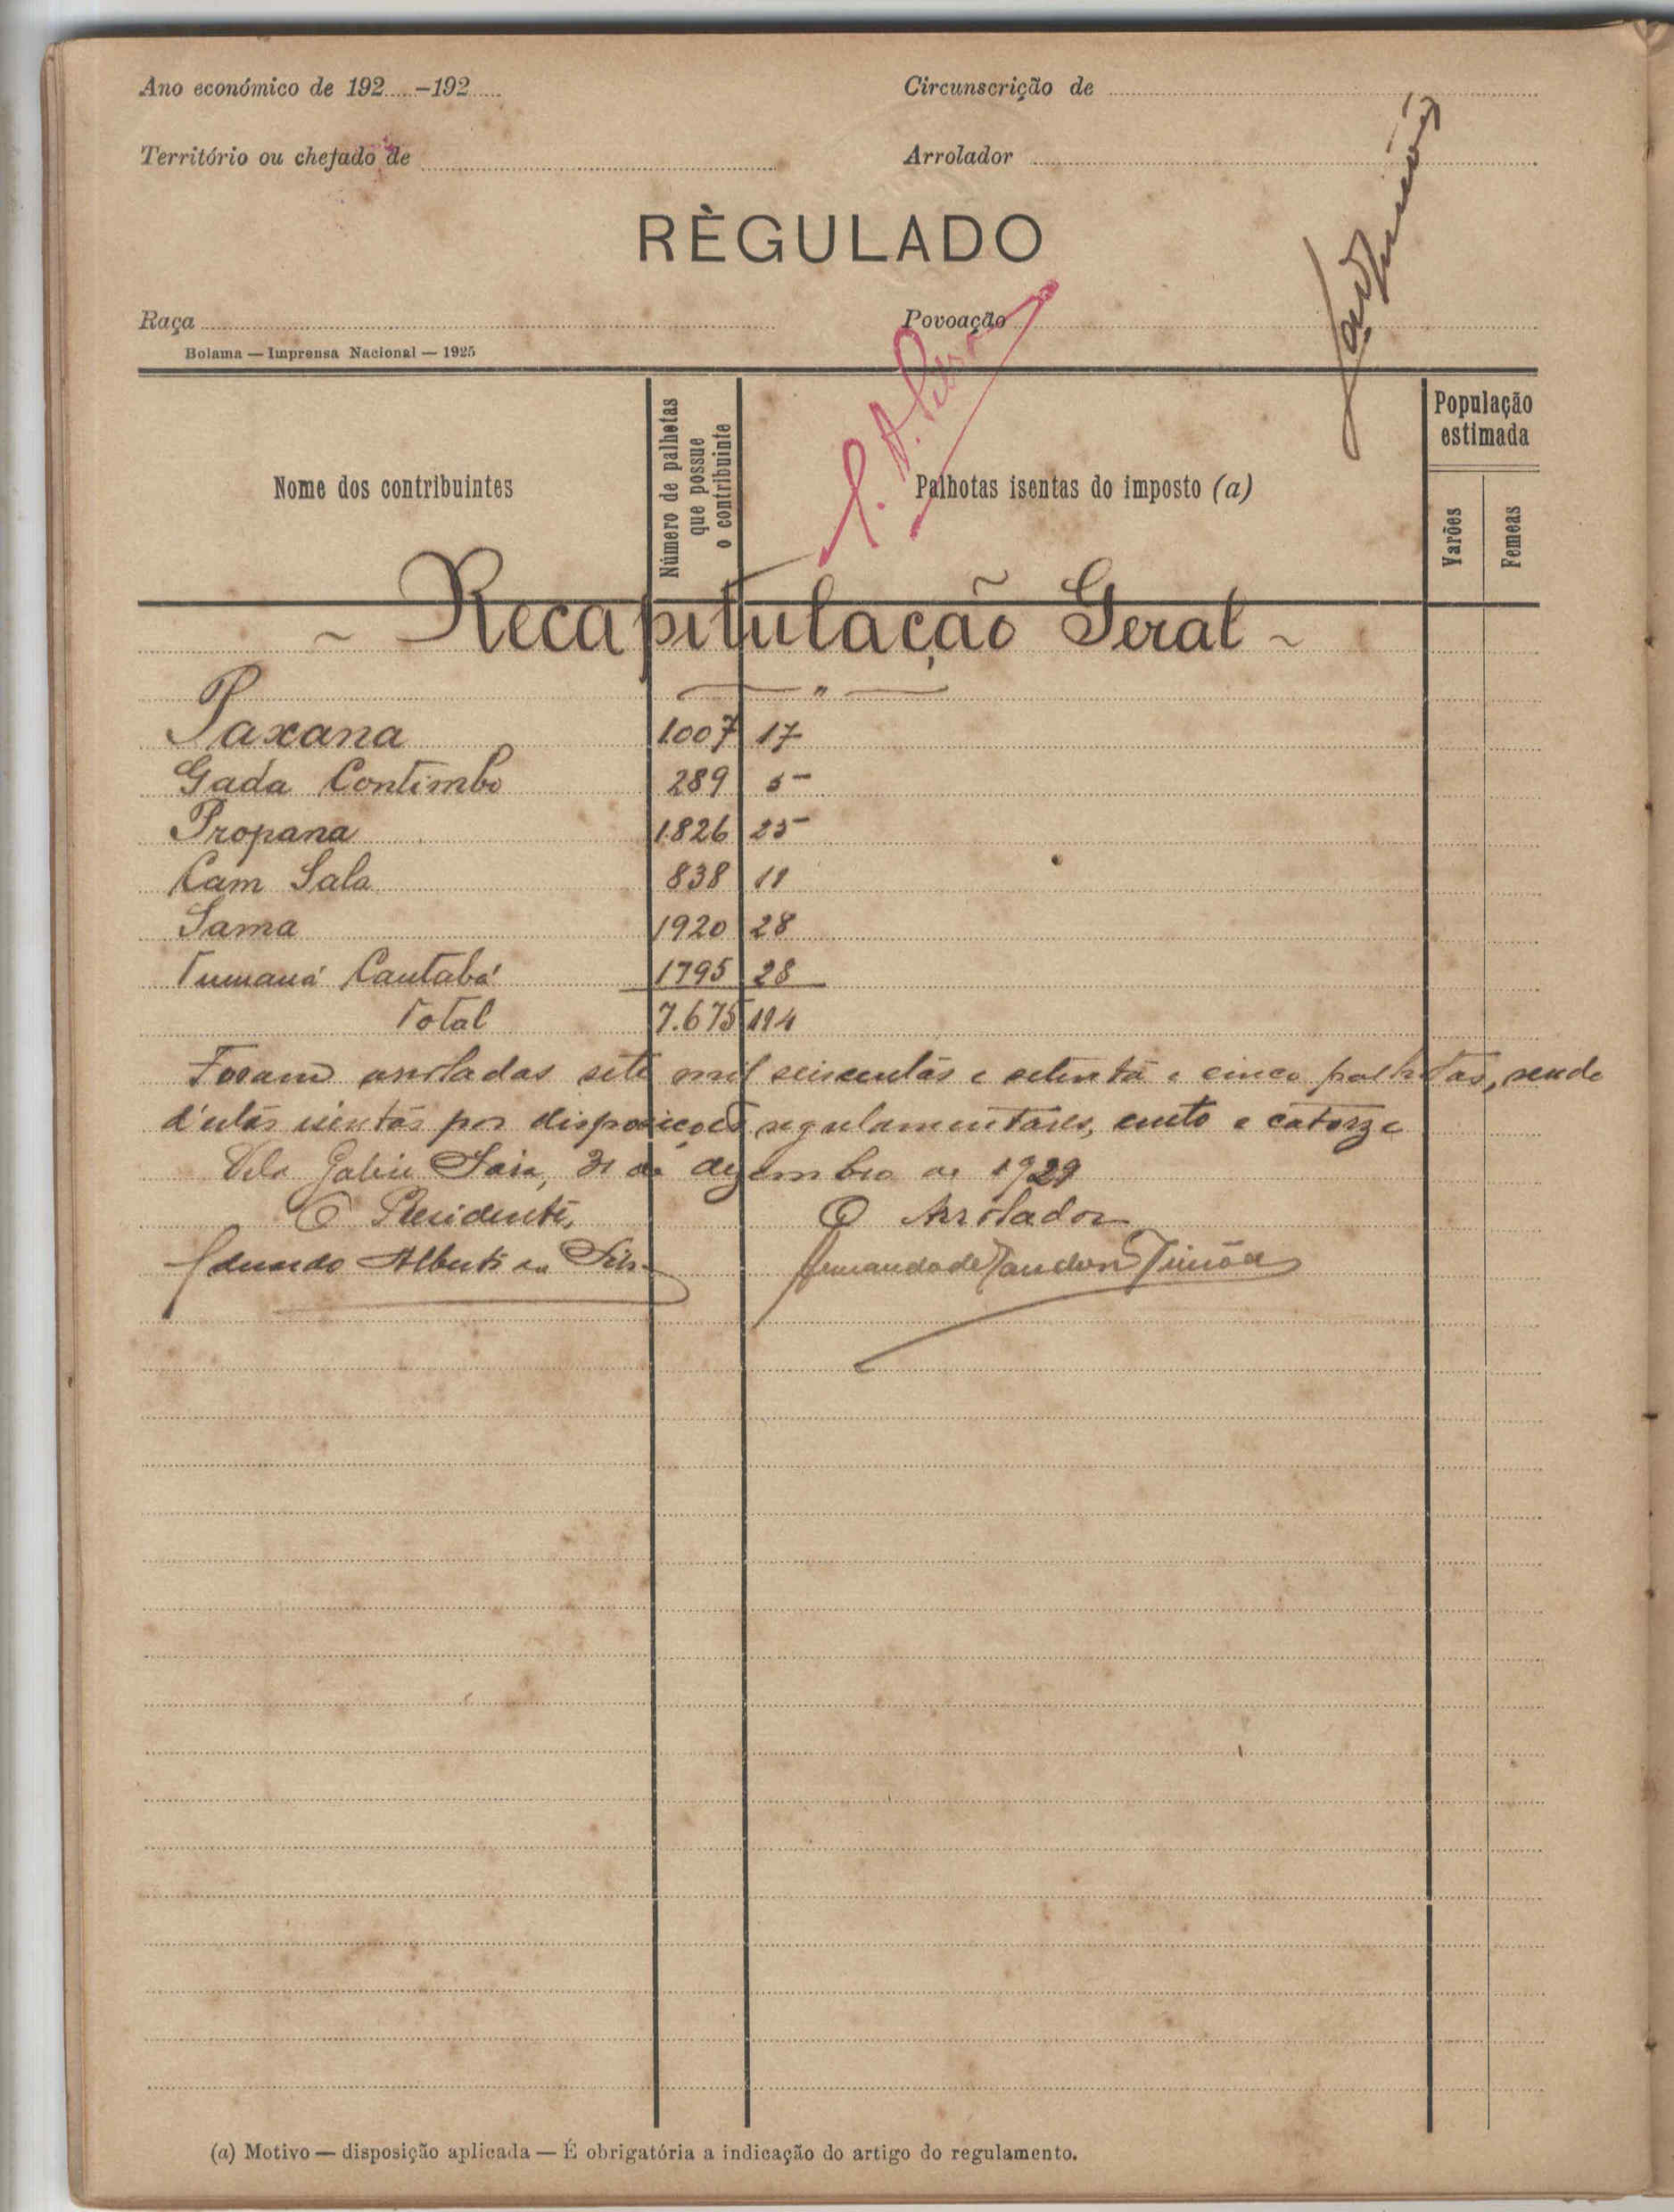 Ano económico de 192.....-192.....
Circunscrição de
Território ou chefado de
Arrolador
RÈGULADO
Raça
Povoação
Bolama — Imprensa Nacional — 1925
Nome dos contribuintes
Número de palhotas que possue o contribuinte
Palhotas isentas do imposto (a)
População estimada
Varões
Femeas
~ Recapitulação Geral ~
Paxana 1007 17
Gada Contimbo 289 5
Propana 1826 25
Cam Sala 838 11
Sama 1920 28
Tumaná Cantabá 1795 28
Total 7.675 114
Foram arroladas sete mil seiscentas e setenta e cinco palhotas, sendo
d'estas isentas por disposições regulamentares, cento e catorze
Vila Gabú Sara, 31 de dezembro de 1929
O Residente,
O Arrolador
Eduardo Alberto da Silva
(a) Motivo — disposição aplicada — É obrigatória a indicação do artigo do regulamento.